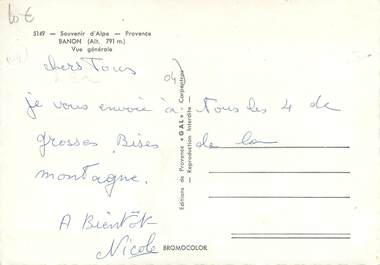 lot
5149 - Souvenir d'Alpe - Provence
BANON (Alt. 791 m.)
Vue générale
(04)
chers Tous
je vous envoie à Tous les 4 de
grosses Bises de la
montagne.
A Bientôt
Nicole
Editions de Provence « GAL » - Carpentras
- Reproduction Interdite -
BROMOCOLOR